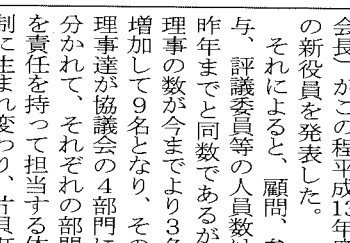 会長）がこの程平成13年
の新役員を発表した。
それによると、顧問、
与、評議委員等の人員数は
昨年までと同数であるが
理事の数が今までより3名
増加して9名となり、その
理事達が協議会の4部門に
分かれて、それぞれの部門
を責任を持って担当する体
制に生まれ変わり、